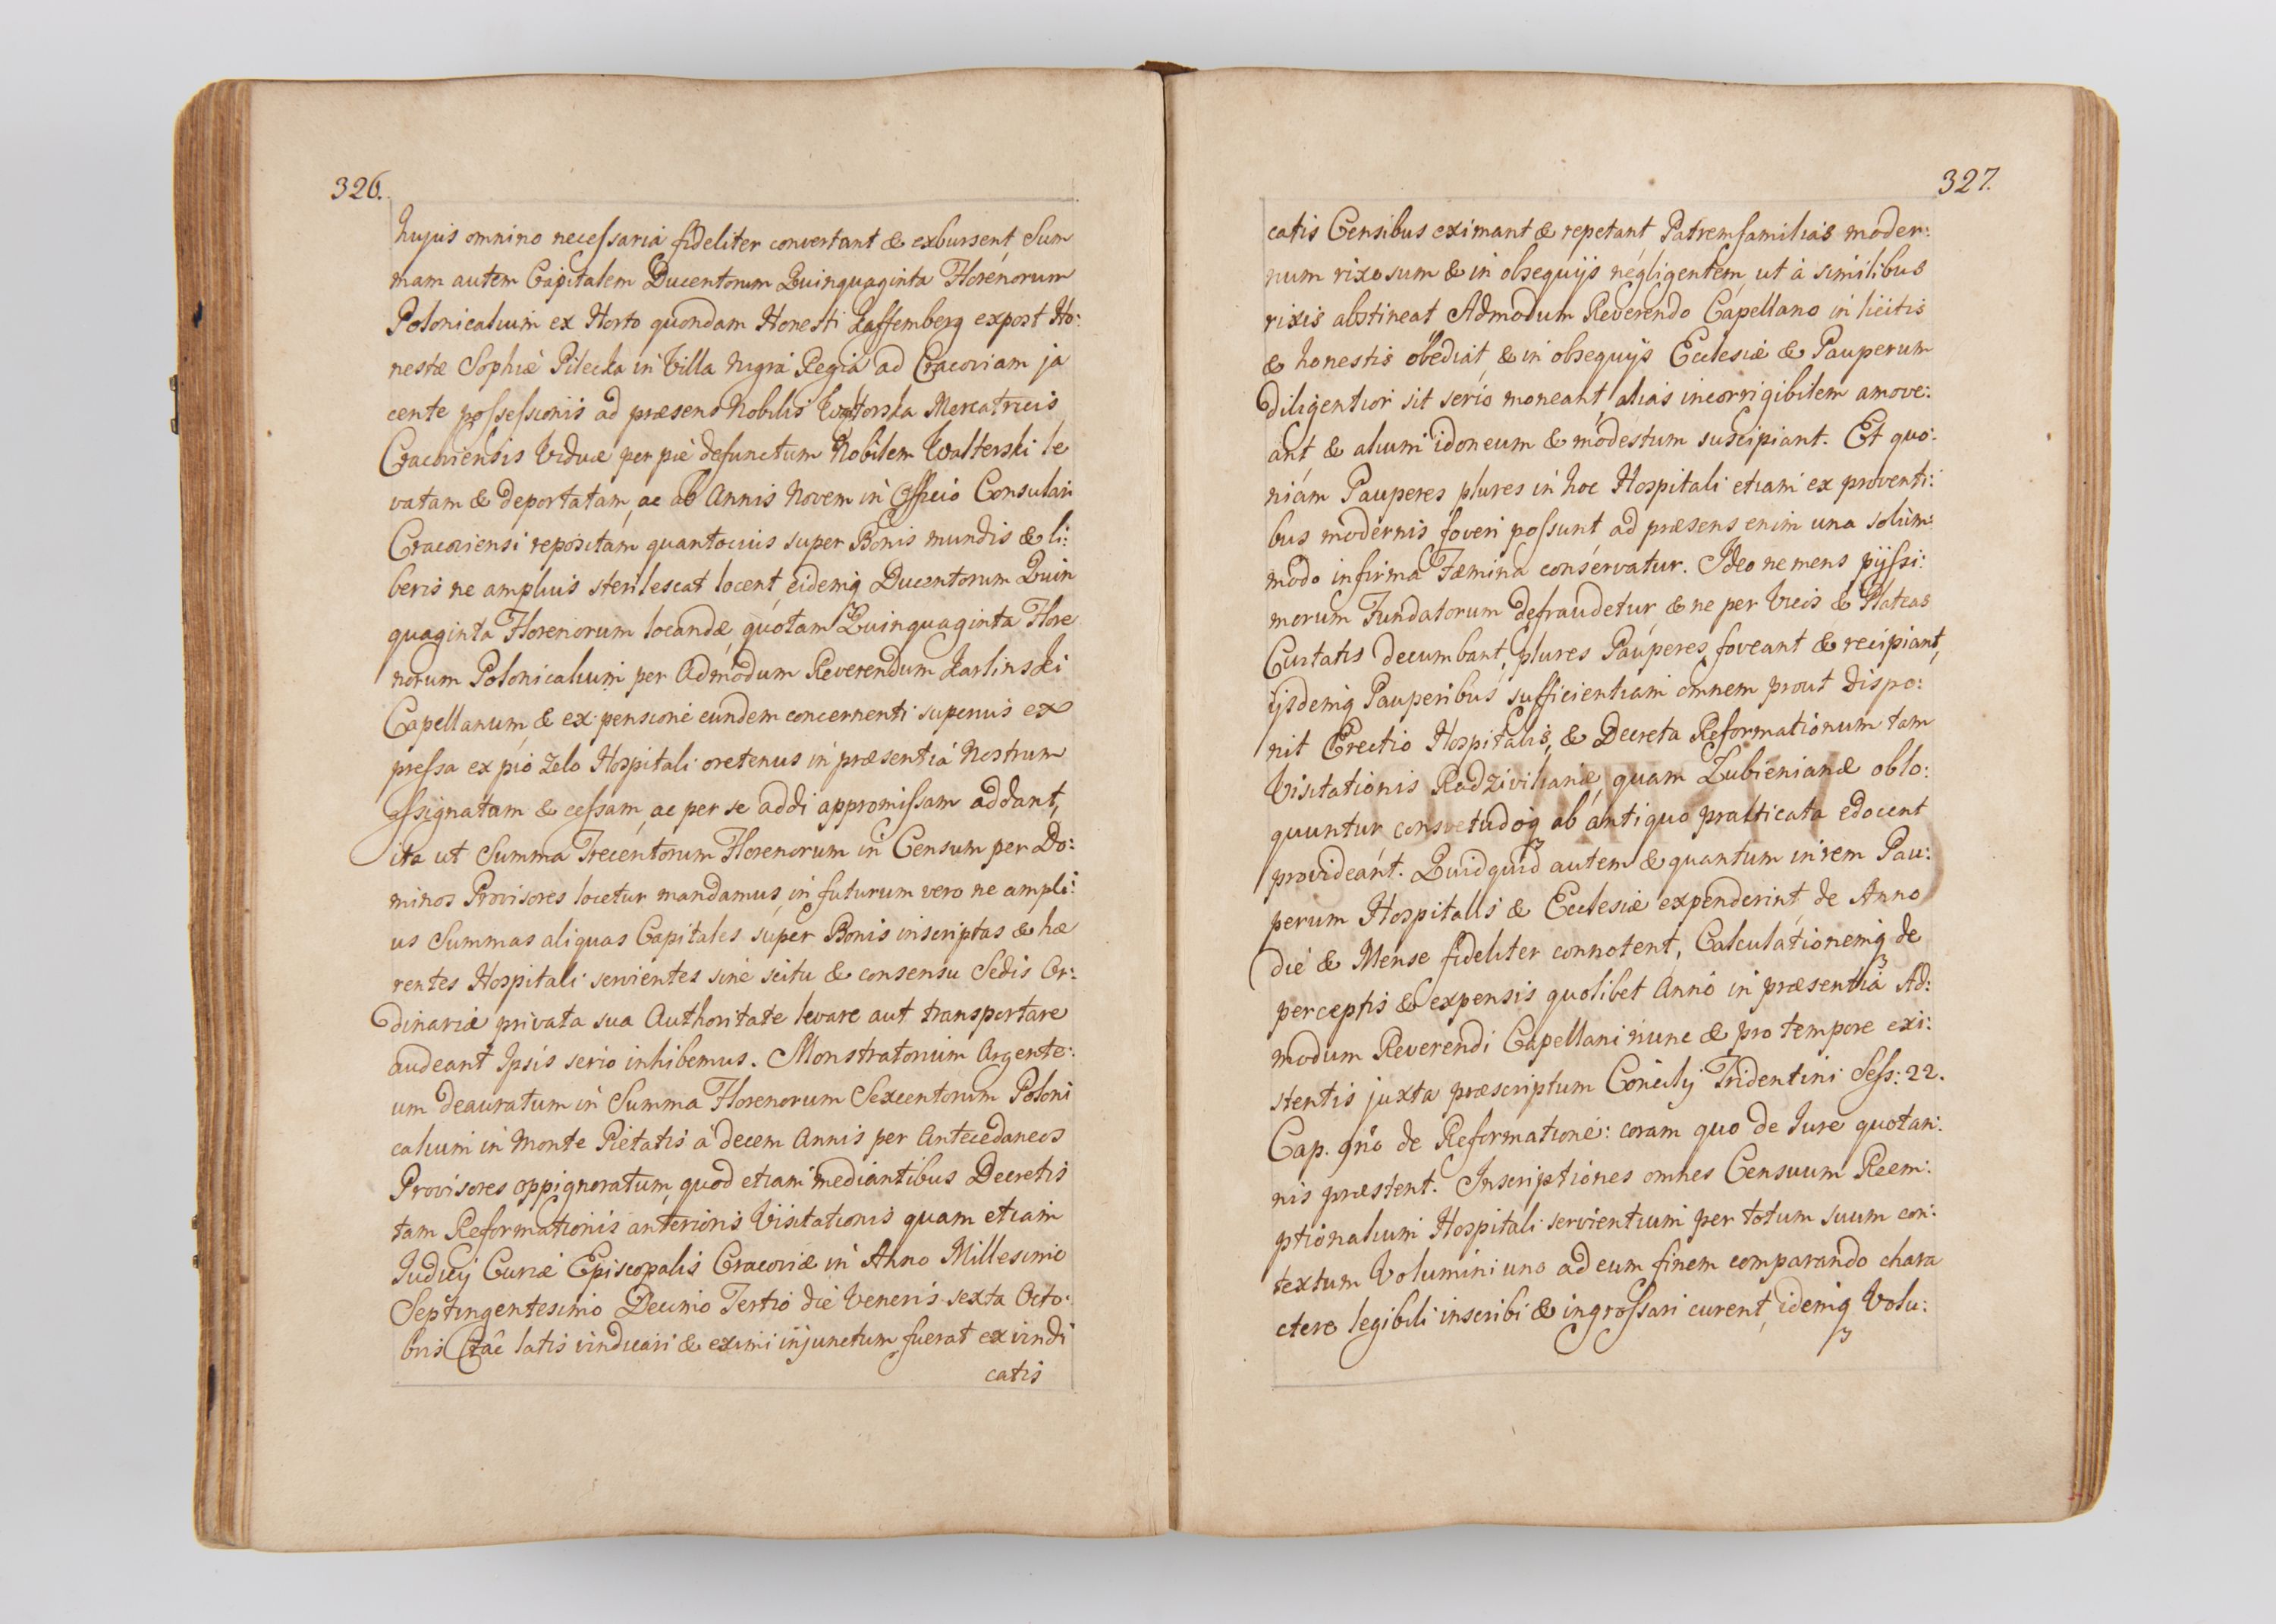 326.
hujus omnino necessaria fideliter convertant & exbursent, Sum
mam autem Capitalem Ducentorum Quinquaginta Florenorum
Polonicalium ex Horto quondam Honesti Kaffemberg expost Ho:
nestæ Sophiæ Pilecka in Villa Nigra Regia ad Cracoviam ja
cente possessionis ad præsens Nobilis Mercatricis
Cracoviensis Viduæ per pie defunctum Nobilem Walterski le
vatam & deportatam, ac ab Annis Novem in Officio Consulari
Cracoviensi repositam quantocius super Bonis mundis & li:
beris ne amplius sterilescat locent, eidemq Ducentorum Quin
quaginta Florenorum locandæ, quotam Quinquaginta Flore
norum Polonicalium per Admodum Reverendum Karlinski
Capellanum, & ex pensione eundem concernenti superius ex
pressa ex pio zelo Hospitali oretenus in præsentia Nostrum
assignatam & cessam, ac per se addi appromissam addant,
ita ut Summa Trecentorum Florenorum in Censum per Do:
minos Provisores locetur mandamus, in futurum vero ne ampli:
us Summas aliquas Capitales super Bonis inscriptas & hæ
rentes Hospitali servientes sine scitu & consensu Sedis Or:
dinariæ privata sua Authoritate levare aut transportare
audeant Ipsis serio inhibemus. Monstratorium Argente:
um deauratum in Summa Florenorum Sexcentorum Poloni
calium in Monte Pietatis a decem Annis per Antecedaneos
Provisores oppignoratum, quod etiam mediantibus Decretis
tam Reformationis anterioris Visitationis quam etiam
Judicij Curiæ Episcopalis Cracoviæ in Anno Millesimo
Septingentesimo Decimo Tertio die Veneris sexta Octo:
bris latis vindicari & eximi injunctum fuerat ex vindi
catis
327.
catis Censibus eximant & repetant Patremfamilias moder:
num rixosum & in obsequijs negligentem, ut à similibus
rixis abstineat Admodum Reverendo Capellano in licitis
& honestis obediat, & in obsequijs Ecclesiæ & Pauperum
diligentior sit serio moneant, alias incorrigibilem amove:
ant & alium idoneum & modestum suscipiant. Et quo:
niam Pauperes plures in hoc Hospitali etiam ex proventi:
bus modernis foveri possunt ad præsens enim una solum:
modo infirma Fæmina conservatur. Ideo ne mens pijssi:
morum Fundatorum defraudetur, & ne per Vicis & Plateas
Civitatis decumbant, plures Pauperes foveant & recipiant,
ijsdemq Pauperibus sufficientiam omnem prout dispo:
nit Erectio Hospitalis, & Decreta Reformationum tam
Visitationis Radzivilianæ, quam Lubienianæ oblo:
quuntur, consvetudoq ab antiquo practicata edocent
provideant. Quidquid autem & quantum in rem Pau:
perum Hospitalis & Ecclesiæ expenderint, de Anno
die & Mense fideliter connotent, Calculationemq de
perceptis & expensis quolibet Anno in præsentia Ad:
modum Reverendi Capellani nunc & pro tempore exi:
stentis juxta præscriptum Concilij Tridentini Sess: 22.
Cap. 9no de Reformatione: coram quo de Jure quotan:
nis præstent. Inscriptiones omnes Censuum Reem:
ptionalium Hospitali servientium per totum suum con:
textum Volumini uno ad eum finem comparando chara
ctere legibili inscribi & ingrossari curent, idemq Volu: